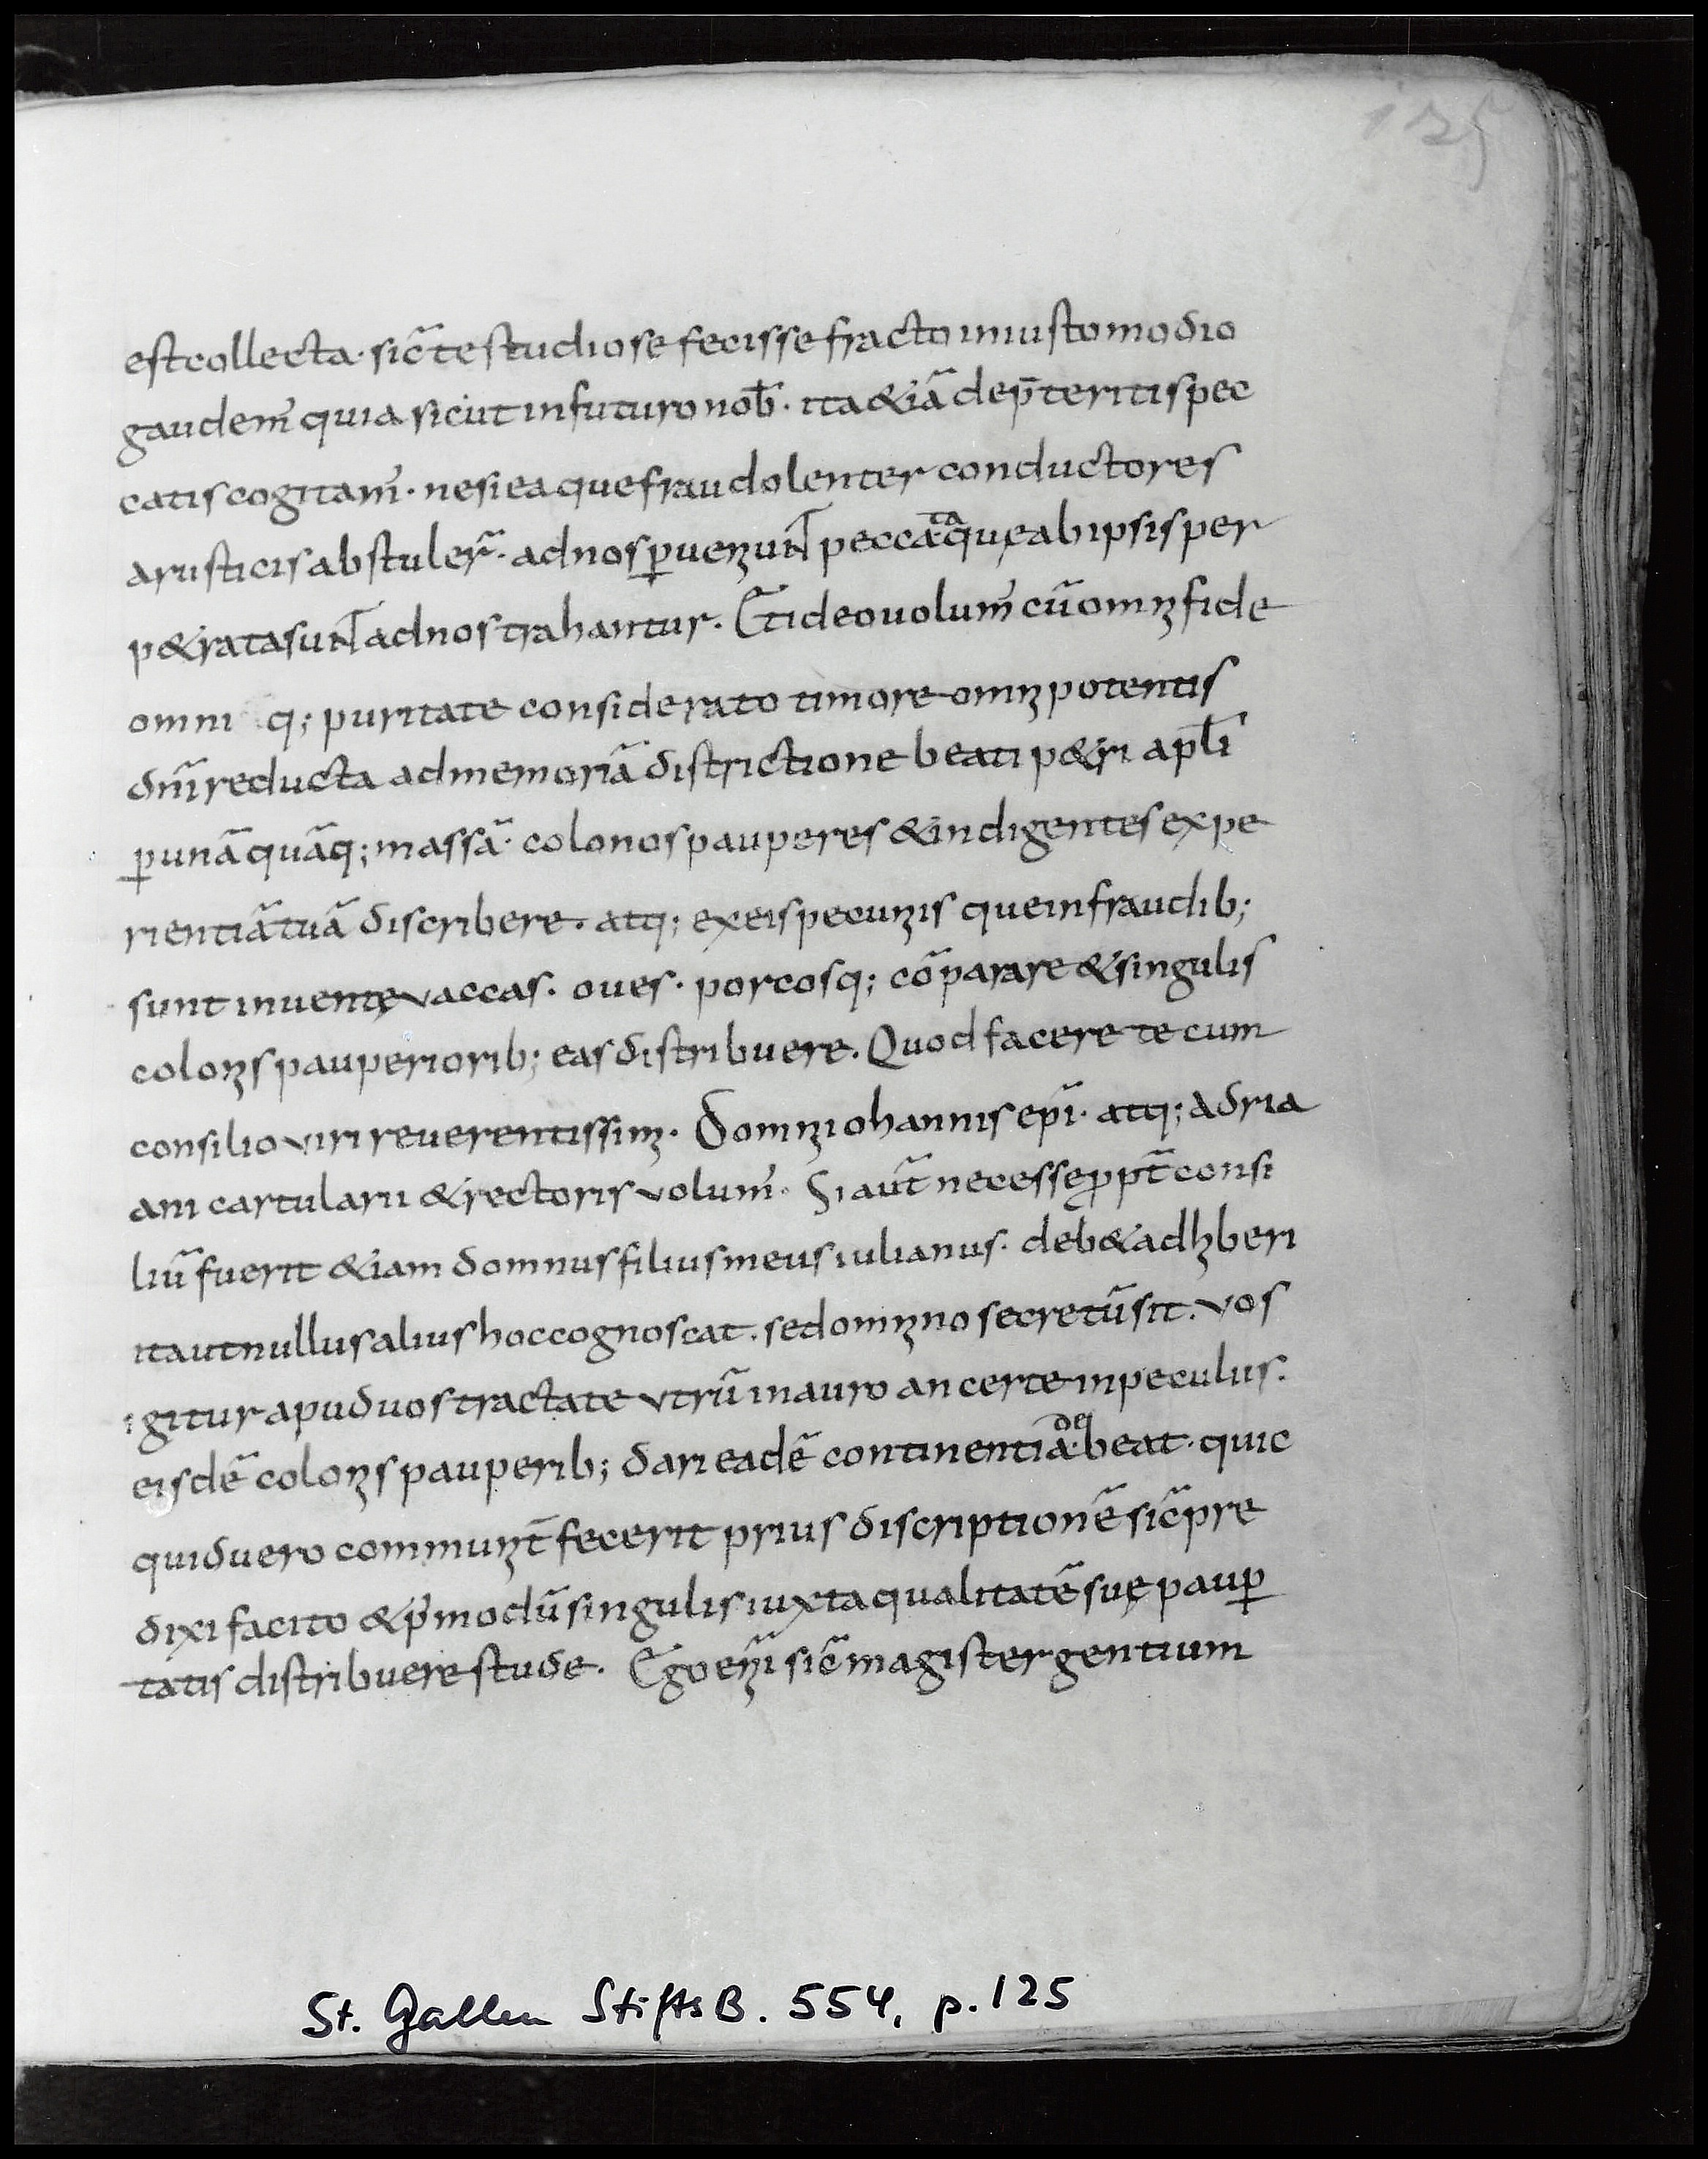 125
est collecta · sic̃ te studiose fecisse fracto iniusto modio
gaudem̃ quia sicut in futuro nob̄ · ita &iã de p̄teritis pec
catis cogitam̃ · ne si ea que fraudolenter conductores
a rusticis abstuler̃ · ad nos ꝑueniuNT peccata quę ab ipsis per
p&rata suNT ad nos trahantur. Et ideo volum̃ cũ omni fide
omni q; puritate considerato timore omnipotentis
dñi reducta ad memoriã districtione beati p&ri apłi
ꝑ unã quãq; massã · colonos pauperes & indigentes expe
rientiã tuã discribere · atq; ex eis pecuniis que in fraudib;
sunt inventę vaccas · oves · porcosq; cõparare & singulis
colonis pauperiorib; eas distribuere. Quod facere te cum
consilio viri reverentissimi · domni iohannis ep̃i · atq; adria
ani cartularii & rectoris volum̃ · Si aut̃ necesse ꝓpt̃ consi
liũ fuerit &iam domnus filius meus iulianus · deb& adhiberi
ita ut nullus alius hoc cognoscat · sed omnino secretũ sit. Vos
igitur apud vos tractate utrũ in auro an certe in peculiis ·
eisdẽ colonis pauperib; dari eadẽ continentia debeat · quic
quid vero communit̃ fecerit prius discriptionẽ sic̃ pre
dixi facito & p̃modũ singulis iuxta qualitatẽ suę pauꝑ
tatis distribuere stude. Ego enĩ sic̃ magister gentium
St. Gallen StiftsB. 554, p. 125